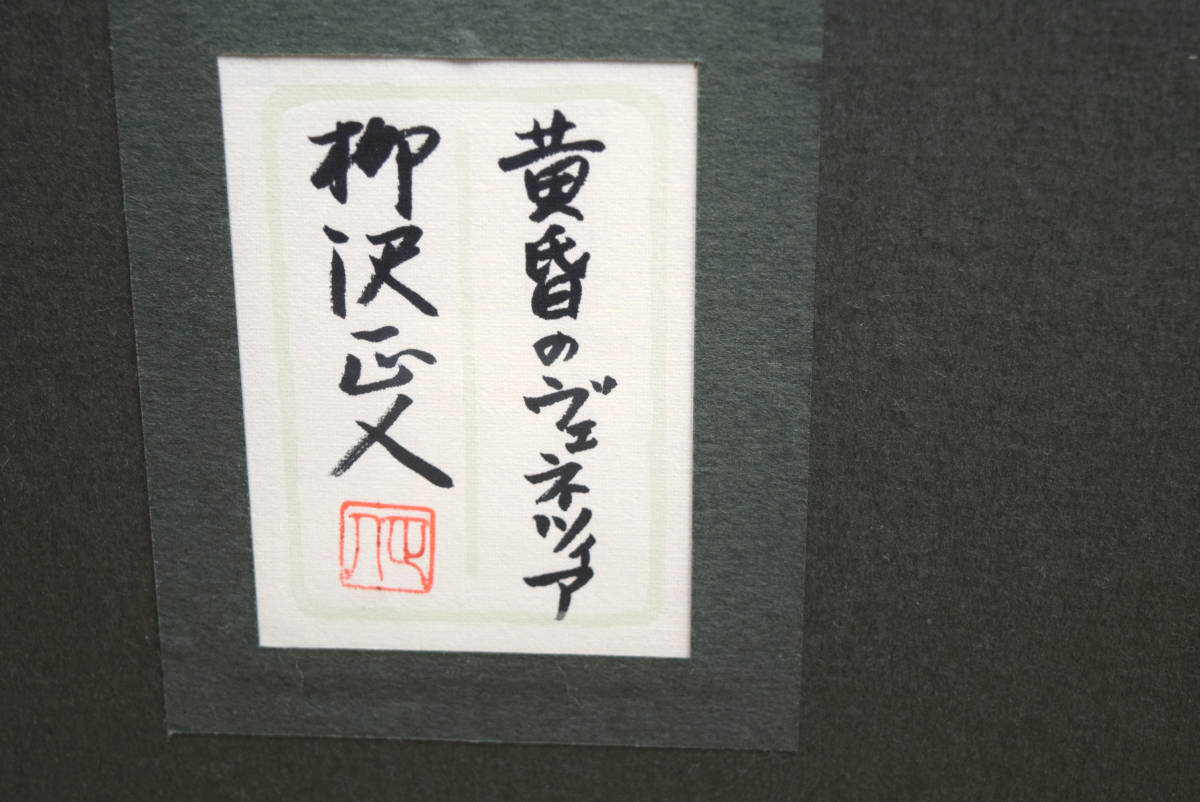 黄昏のヴェネツィア
柳沢正人